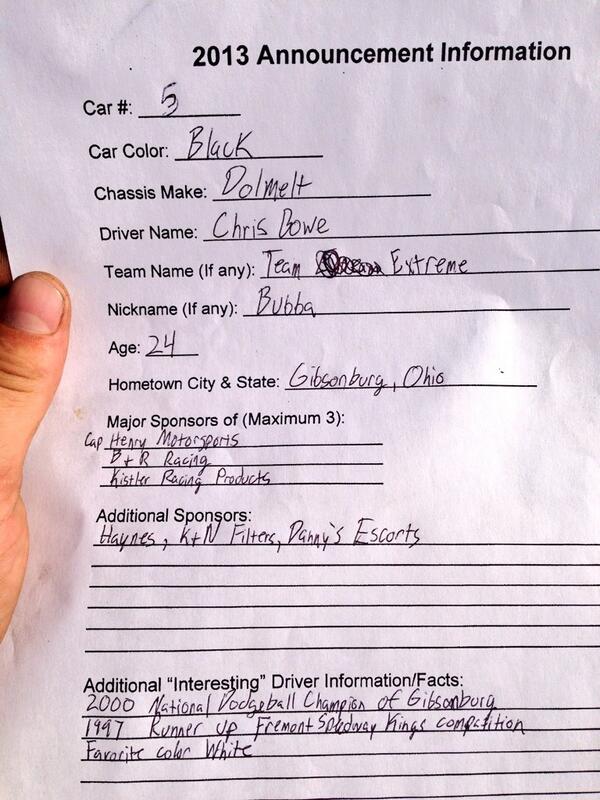 2013 Announcement Information
Car #: 5
Car Color: Black
Chassis Make: Dolmelt
Driver Name: Chris Bowe
Team Name (If any): Team Extreme
Nickname (If any): Bubba
Age: 24
Hometown City & State: Gibsonburg, Ohio
Major Sponsors of (Maximum 3):
Cap Henry Motorsports
B+R Racing
Kistler Racing Products
Additional Sponsors:
Haynes, K+N Filters, Danny's Escorts
Additional “Interesting” Driver Information/Facts:
2000 National Dodgeball Champion of Gibsonburg
1997 Runner up Fremont Speedway Kings compatition
Favorite color White